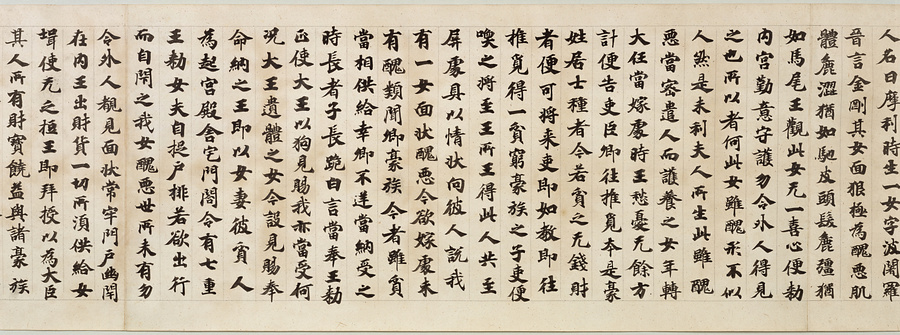 人名曰摩利時生一女字波闍羅
晉言金剛其女面狠極為醜惡肌
體麁澀猶如駞皮頭髮麁彊猶
如馬尾王觀此女无一喜心便勅
内宮勤意守護勿令外人得見
之也所以者何此女雖醜形不似
人然是末利夫人所生此雖醜
惡當密遣人而護養之女年轉
大任當嫁處時王愁憂无餘方
計便告吏臣卿往推覓本是豪
姓居士種者今若貧乏无錢財
者便可將来吏即如教即往
推覓得一貧窮豪族之子吏便
喚之將至王所王得此人共至
屏處具以情狀向彼人說我
有一女面狀醜惡今欲嫁處未
有醜類聞卿豪族今者雖貧
當相供給幸卿不逆當納受之
時長者子長跪白言當奉王勅
正使大王以狗見賜我亦當受何
況大王遺體之女今設見賜奉
命納之王即以女妻彼貧人
為起宮殿舍宅門閤令有七重
王勅女夫自捉戶排若欲出行
而自閇之我女醜惡世所未有勿
令外人覩見面狀常牢門戶幽閇
在内王出財貨一切所須供給女
壻使无乏短王即拜授以為大臣
其人所有財寶饒益與諸豪族